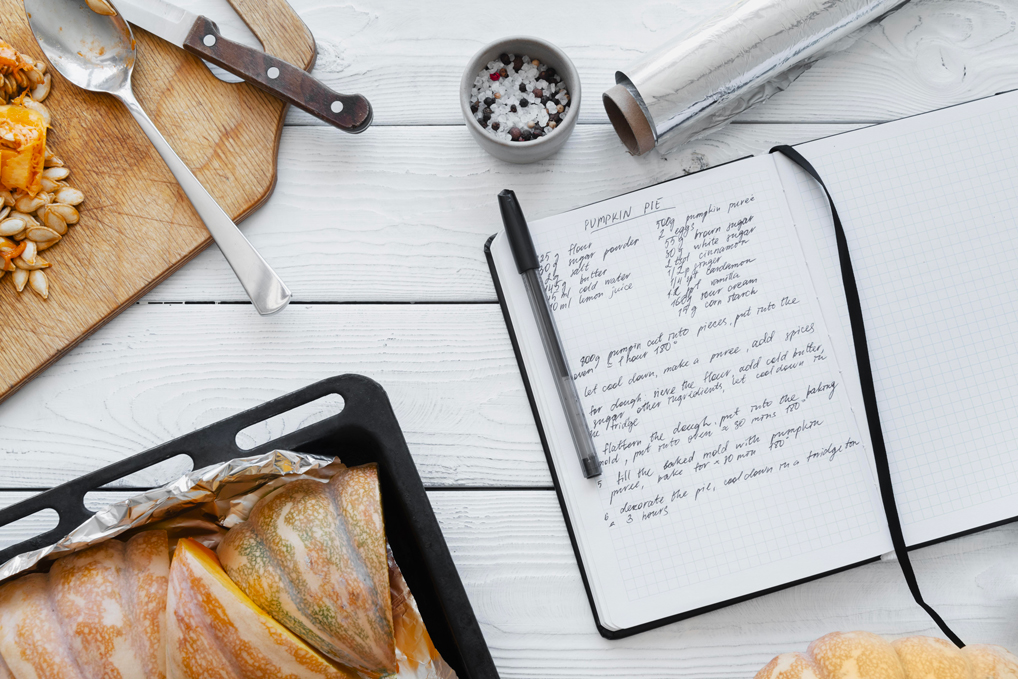 PUMPKIN PIE
25 g flour
30 g sugar powder
salt
butter
ml cold water
ml lemon juice
500g pumpkin puree
2 eggs
55 g brown sugar
30 g white sugar
2 tspl cinnamon
1/2 p ginger
1/4 cardamom
vanilla
160g sour cream
19 g corn starch
800g pumpin cut into pieces, put into the
oven 1 hour 180°
let cool down, make a puree, add spices
for dough: sieve the flour, add cold butter,
sugar, other ingridients, let cool down in
fridge
flatten the dough, put into the baking
, put into oven ≈ 30 mins 180°
5 fill the baked mold with pumpkin
puree, bake for ≈ 30 min 180°
6 decorate the pie, cool down in a fridge for
≈ 3 hours